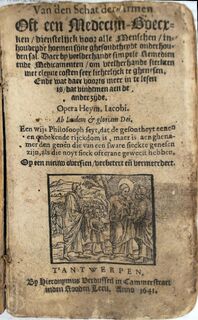 Van den Schat der Armen
Oft een Medecijn-Boecx-
ken / dienstelijck voor alle Menschen / in-
houdende hoemen sijne ghesontheydt onderhou-
den sal. Daer by veelderhande simpele Remedien
ende Medicamenten / om veelderhande sieckten
met cleyne costen seer sekerlijck te ghenesen,
Ende wat daer voorts meer in te lesen
is / dat vindemen aen de
ander zijde.
Opera Heym. Iacobi.
Ab Laudem & gloriam Dei,
Een wijs Philosooph seyt, dat de gesontheyt eenen
onbekende rijckdom is, maer is aenghena-
mer den genen die van een sware sieckte genesen
zijn, als die noyt sieck oft cranc geweest hebben.
Op een nieuw oversien, verbetert en vermeerdert.
T'ANTWERPEN,
By Hieronymus Verdussen in Cammerstraet
inden Rooden Leeu. Anno 1641.